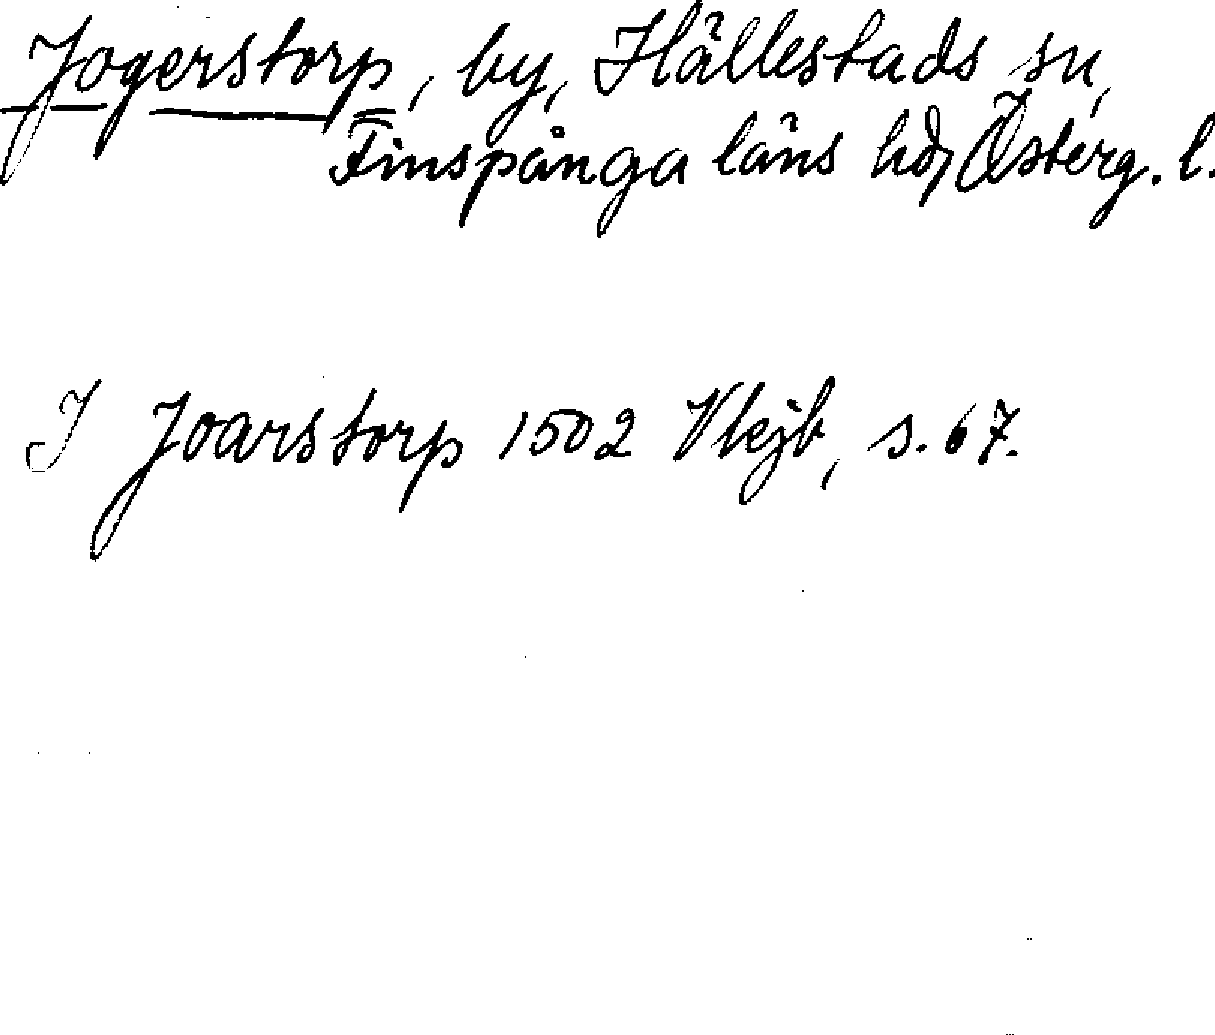 Jogerstorp, by, Hällestads sn,
Finspånga läns hd, Österg. l.
I Joarstorp 1502 Vlejb, s. 67.